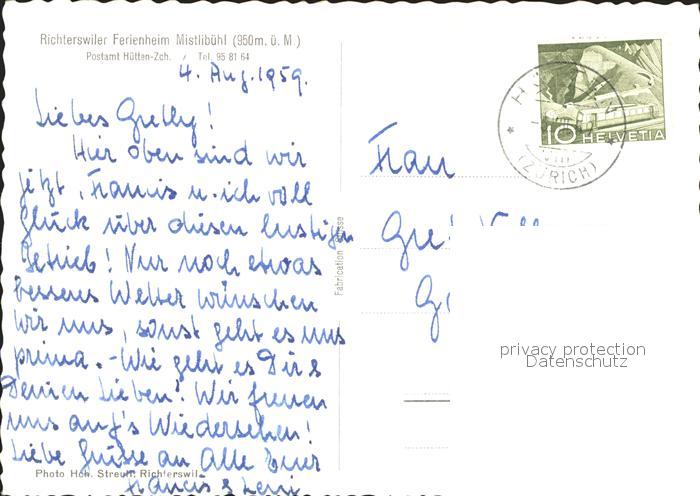 Richterswiler Ferienheim Mistlibühl (950m. ü. M.)
Postamt Hütten-Zch. Tel. 95 81 64
4. Aug. 1959.
Liebes Grethy!
Hier oben sind wir
jetzt, Francis u. ich voll
Glück über diesen lustigen
Betrieb! Nur noch etwas
besseres Wetter wünschen
wir uns, sonst geht es uns
prima. - Wie geht es Dir &
Deinen Lieben? Wir freuen
uns auf's Wiedersehen!
Liebe Grüsse an Alle Euer
Francis &
Photo Hch. Streuli, Richterswil
Fabrication Suisse
10 HELVETIA
(ZÜRICH)
Frau
privacy protection
Datenschutz